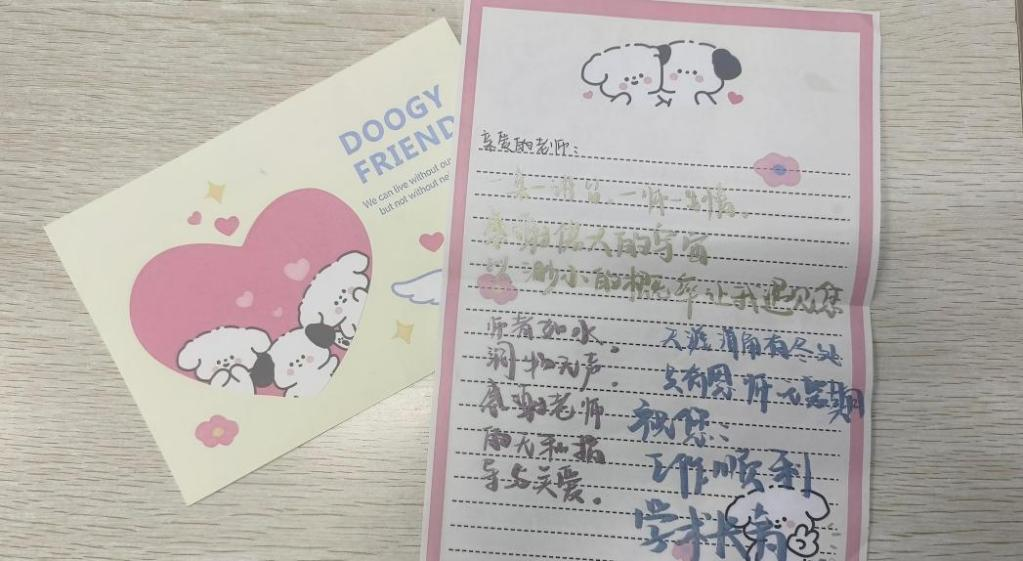 DOOGY
FRIEND
We can live without our
but not without ne
亲爱的老师：
一朝一谁昌、一师一生情。
感谢伟大的宇宙
以渺小的概率让我遇见您
师者如水，
润物无声。
感谢老师
的无私指
导与关爱。
天涯海角有尽处
只有恩师无穷期
祝您：
工作顺利
学术长青